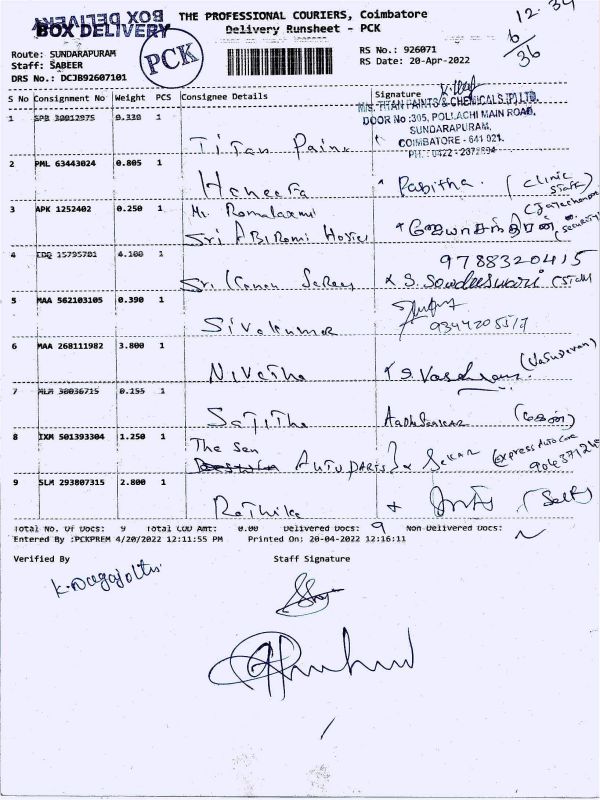 BOX DELIVERY
BOX DELIVERY
THE PROFESSIONAL COURIERS, Coimbatore
Delivery Runsheet - PCK
12.34
6/36
PCK
Route: SUNDARAPURAM
Staff: SABEER
DRS No.: DCJB92607101
RS No.: 926071
RS Date: 20-Apr-2022
S No Consignment No Weight PCS Consignee Details Signature
M/S. TITAN PAINTS & CHEMICALS (P) LTD.
DOOR No :305, POLLACHI MAIN ROAD,
SUNDARAPURAM,
COIMBATORE - 641 021.
1 0.330 1
Titan Paint
2 PML 63443024 0.805 1
Haneefa Pabitha. (Clinic Staff)
3 APK 1252402 0.250 1
Mr. Ramalaxmi
Sri Abirami Hostel ஜெயசந்திரன் (Security)
4 EDQ 15795701 4.100 1
9788320415
S. Sowdeeswari
5 MAA 562103105 0.390 1
Sivakumar
6 MAA 268111982 3.800 1
Nivetha (Vasudevan)
7 MLM 30036715 0.155 1
Sajitha
8 IXM 501393304 1.250 1
The Sen
Auto Parts Sekar Express Auto Care
9 SLM 293807315 2.800 1
Rathika (Self)
Total No. Of Docs: 9 Total COD Amt: 0.00 Delivered Docs: 9 Non Delivered Docs:
Entered By :PCKPREM 4/20/2022 12:11:55 PM Printed On: 20-04-2022 12:16:11
Verified By Staff Signature